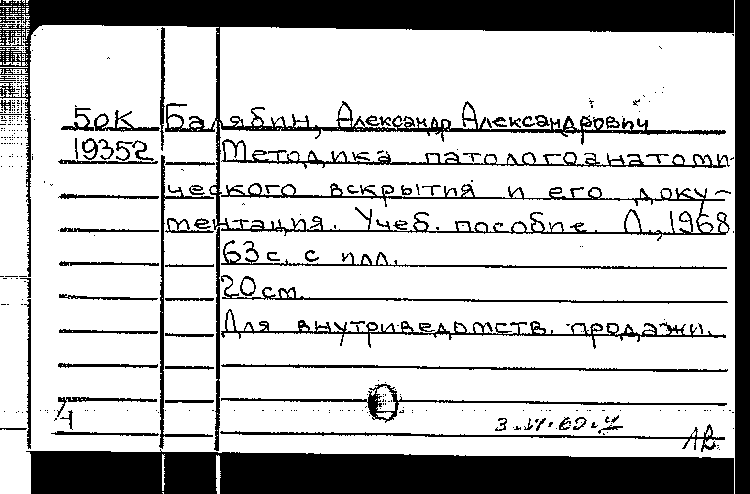 БОК Балябин, Александр Александрович
19352 Методика патологоанатоми-
ческого вскрытия и его доку-
ментация. Учеб. пособие. Л., 1968
63 с. с илл.
20 см.
Для внутриведомств. продажи.